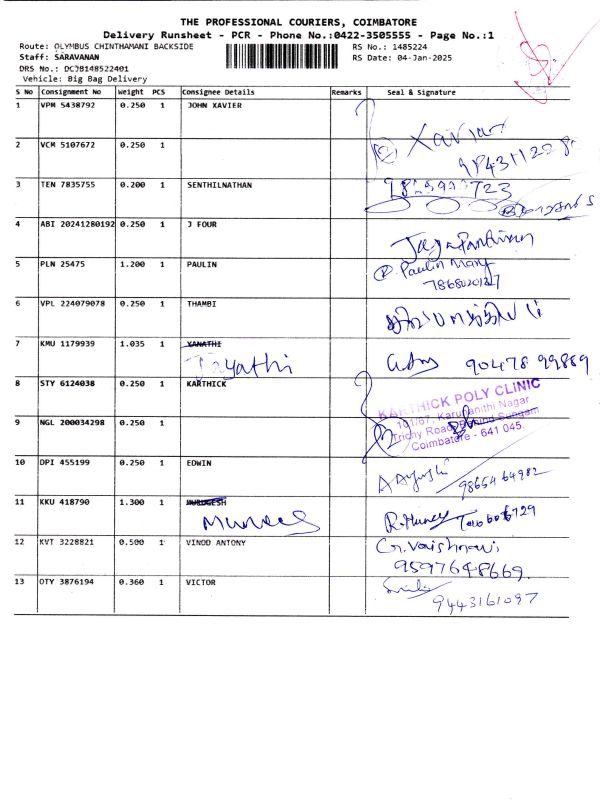 THE PROFESSIONAL COURIERS, COIMBATORE
Delivery Runsheet - PCR - Phone No.:0422-3505555 - Page No.:1
Route: OLYMBUS CHINTHAMANI BACKSIDE RS No.: 1485224
Staff: SARAVANAN RS Date: 04-Jan-2025
DRS No.: DCJB148522401
Vehicle: Big Bag Delivery
S No Consignment No Weight PCS Consignee Details Remarks Seal & Signature
1 VPM 5438792 0.250 1 JOHN XAVIER
Xavier
2 VCM 5107672 0.250 1
3 TEN 7835755 0.200 1 SENTHILNATHAN
4 ABI 20241280192 0.250 1 J FOUR
5 PLN 25475 1.200 1 PAULIN
Paulin Mary
6 VPL 224079078 0.250 1 THAMBI
7 KMU 1179939 1.035 1 XANATHI
90478 99889
8 STY 6124038 0.250 1 KARTHICK
KARTHICK POLY CLINIC
101/67, Karunanithi Nagar
Trichy Road, Sungam
Coimbatore - 641 045.
9 NGL 200034298 0.250 1
10 DPI 455199 0.250 1 EDWIN
98654 64982
11 KKU 418790 1.300 1 MURUGESH
12 KVT 3228821 0.500 1 VINOD ANTONY G. Vaishnavi
9597648669
13 OTY 3876194 0.360 1 VICTOR
9443161097